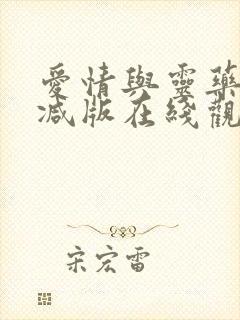 愛情與靈藥
减版在綫觀
宋宏雷